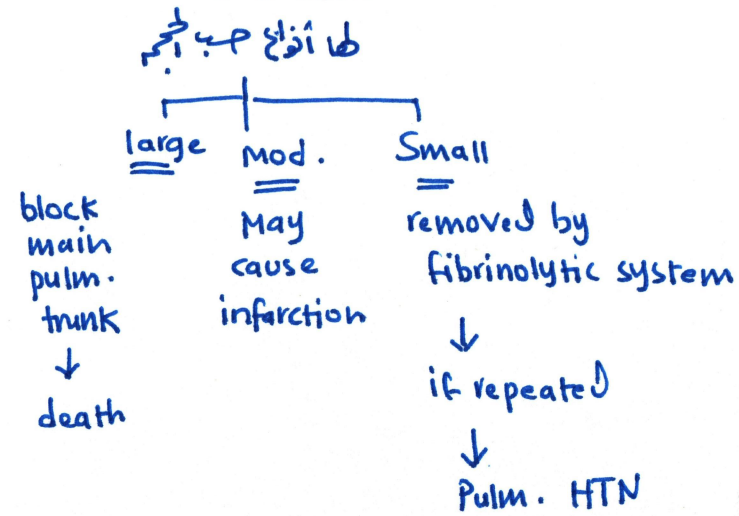 لها أنواع حسب الحجم
large
Mod.
Small
block
main
pulm.
trunk
↓
death
May
cause
infarction
removed by
fibrinolytic system
↓
if repeated
↓
Pulm. HTN